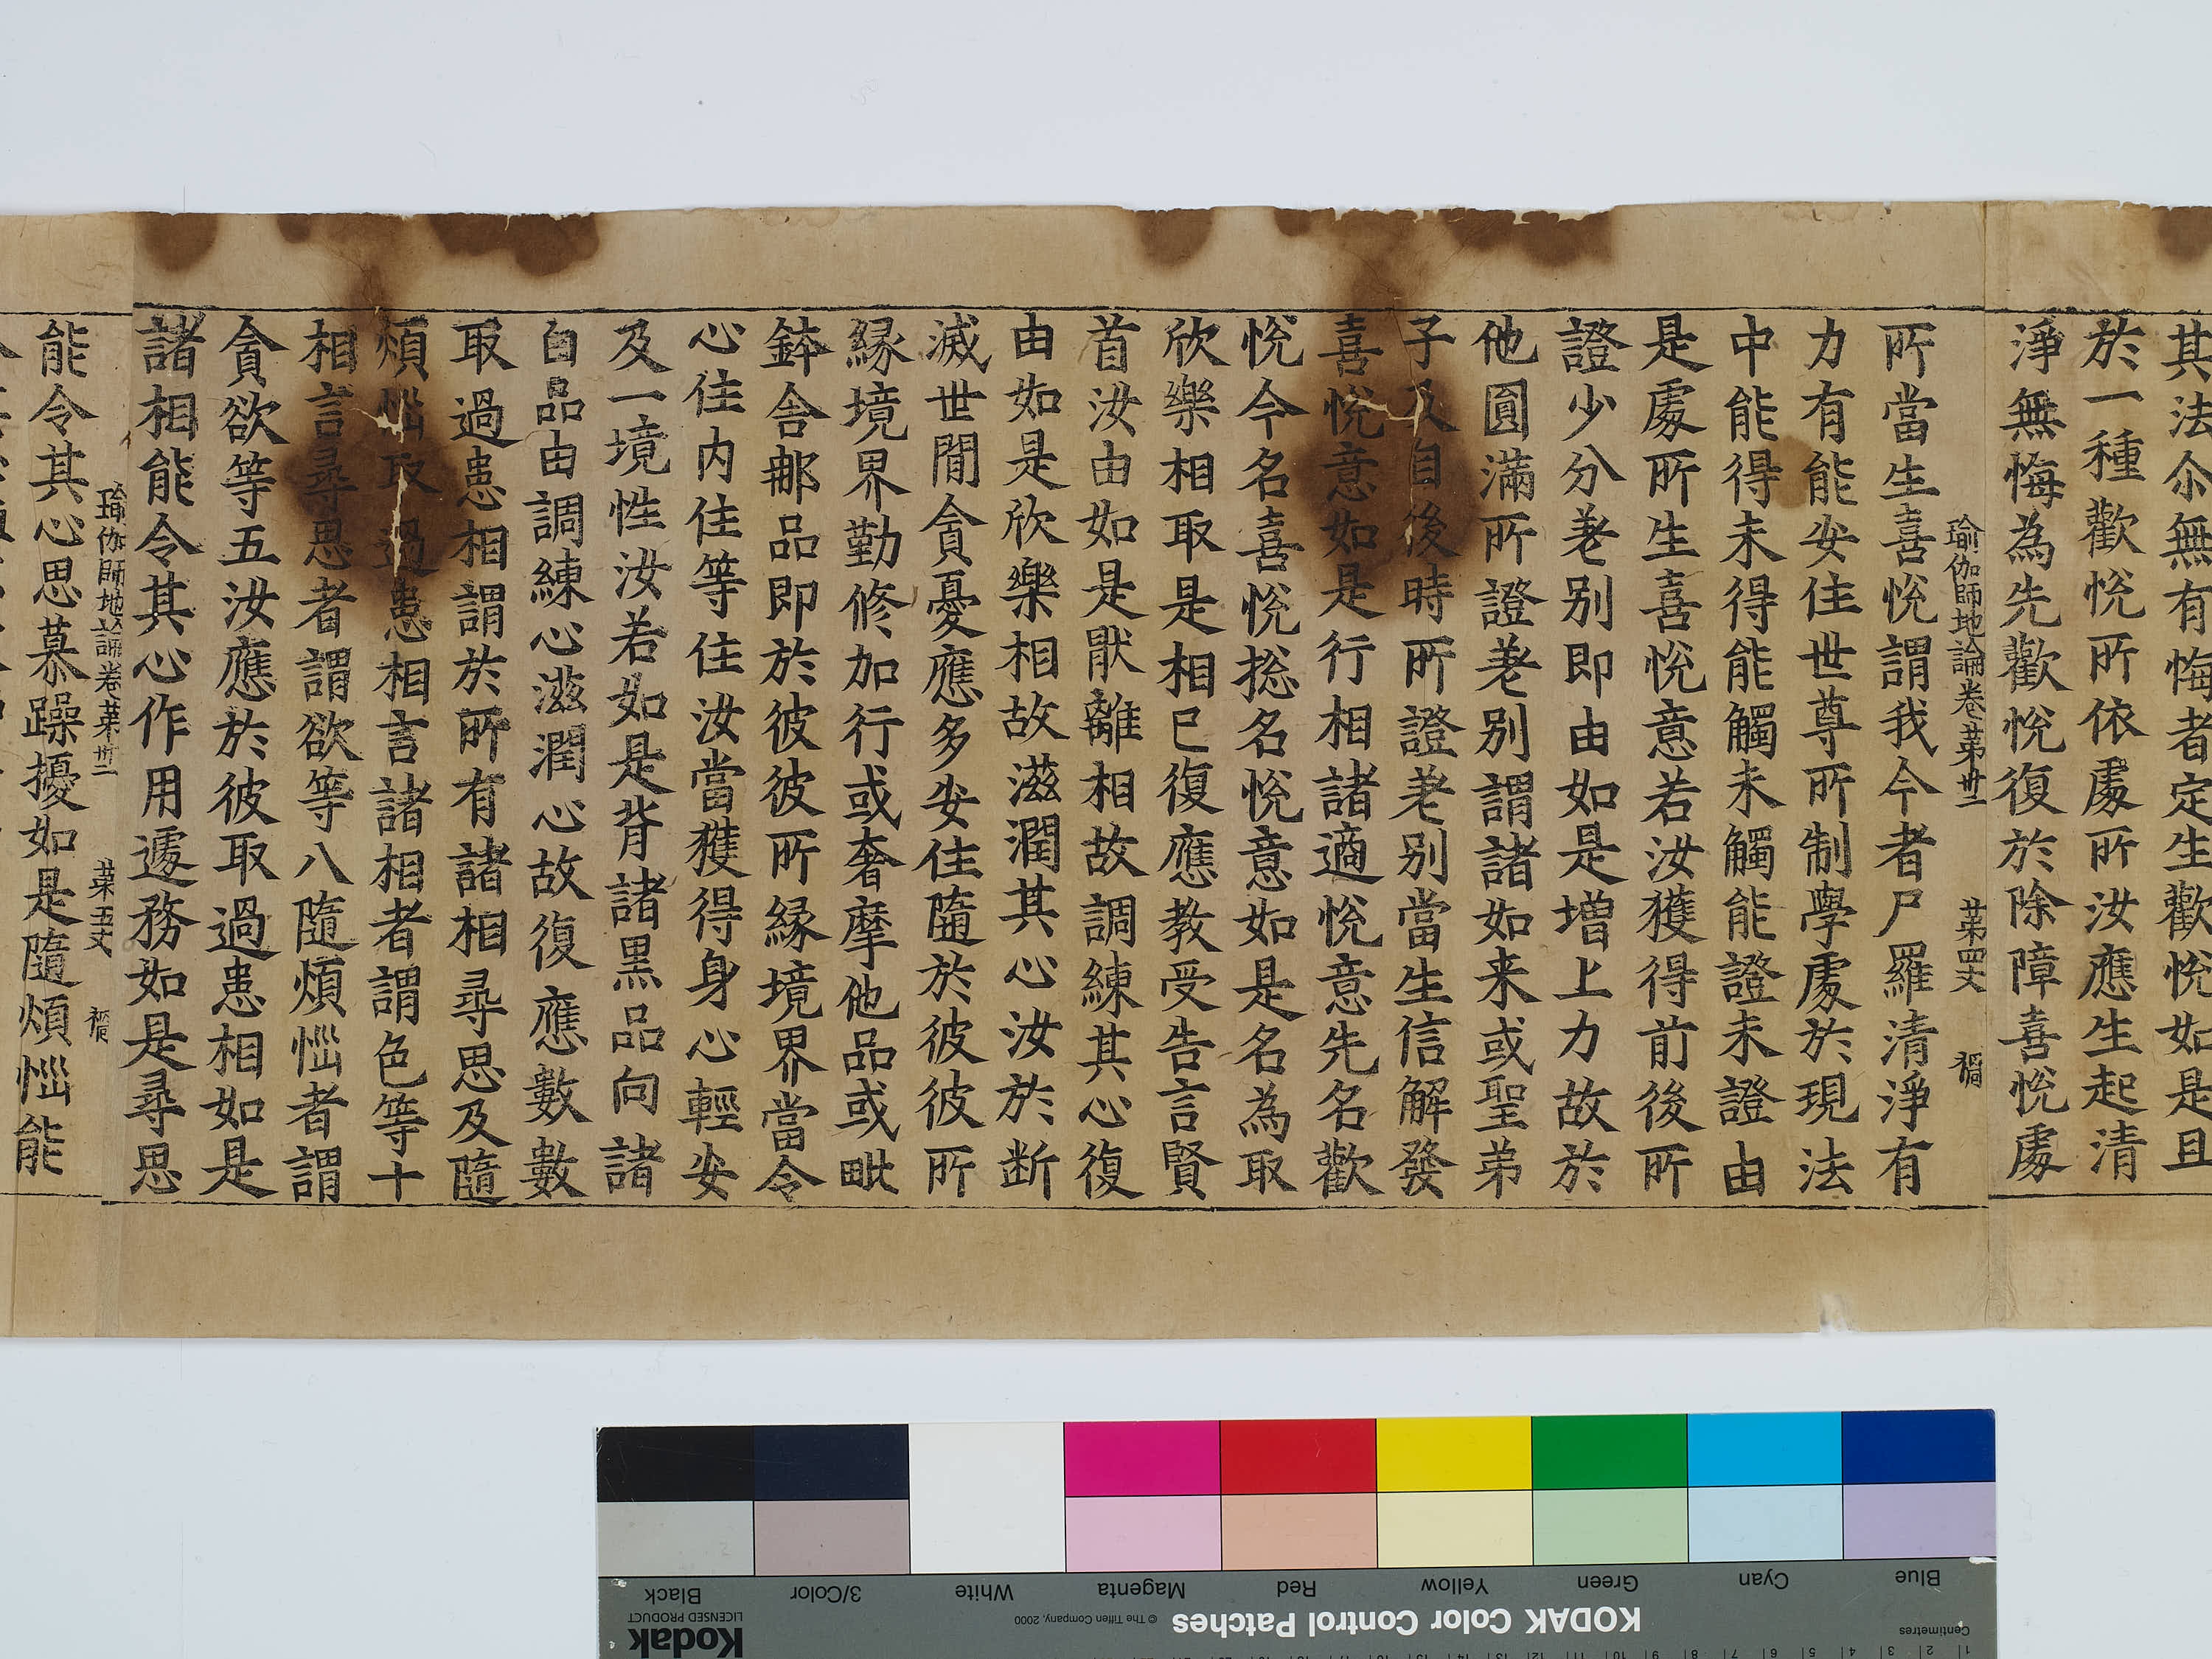 其法尒無有悔者定生歡悅如是且
於一種歡悅所依處所汝應生起清
淨無悔為先歡悅復於除障喜悅處
瑜伽師地論卷苐卅二 苐四丈
所當生喜悅謂我今者尸羅清淨有
力有能安住世尊所制學處於現法
中能得未得能觸未觸能證未證由
是處所生喜悅意若汝獲得前後所
證少分差别即由如是增上力故於
他圓滿所證差别謂諸如来或聖弟
子及自後時所證差别當生信解發
喜悅意如是行相諸適悅意先名歡
悅今名喜悅揔名悅意如是名為取
欣樂相取是相已復應教受告言賢
首汝由如是猒離相故調練其心復
由如是欣樂相故滋潤其心汝於断
滅世間貪憂應多安住隨於彼彼所
緣境界勤修加行或奢摩他品或毗
鉢舍那品即於彼彼所緣境界當令
心住内住等住汝當獲得身心輕安
及一境性汝若如是背諸黑品向諸
白品由調練心滋潤心故復應數數
取過患相謂於所有諸相尋思及隨
煩惱取過患相言諸相者謂色等十
相言尋思者謂欲等八隨煩惱者謂
貪欲等五汝應於彼取過患相如是
諸相能令其心作用遽務如是尋思
瑜伽師地論卷苐卅二 苐五丈
能令其心思慕躁擾如是隨煩惱能
Blue
Cyan
Green
Yellow
Red
Magenta
White
3/Color
Black
KODAK Color Control Patches
© The Tiffen Company, 2000
Kodak
LICENSED PRODUCT
Centimetres